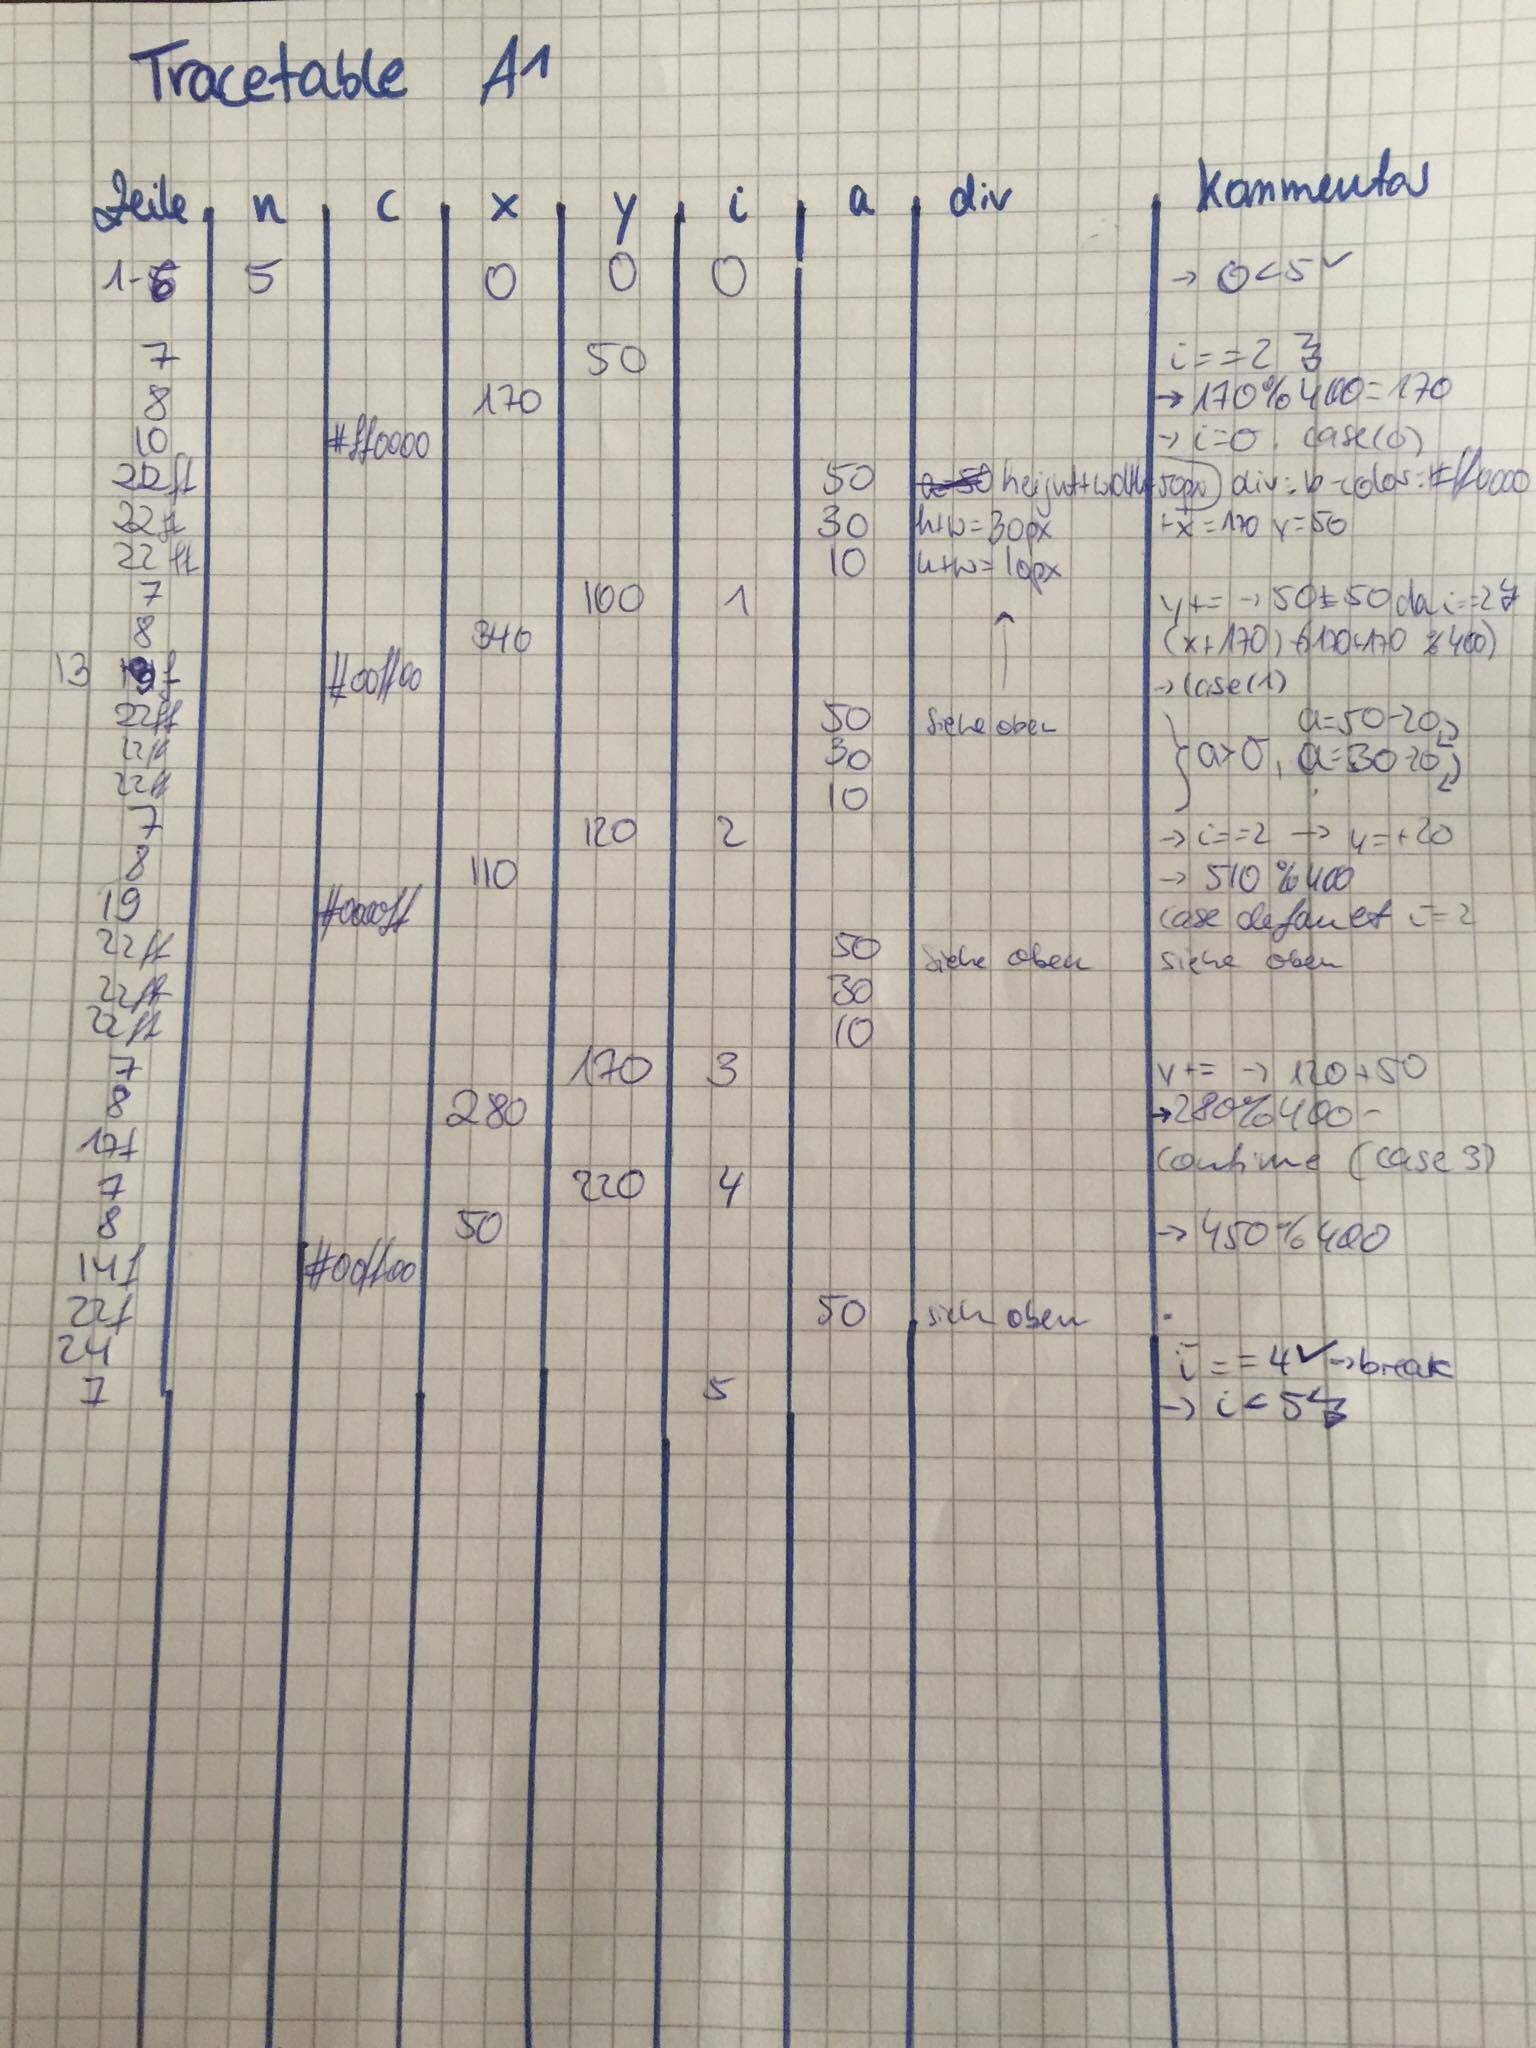 Tracetable A1
Zeile n c x y i a div Kommentar
1-6 5 0 0 0 → 0<5 ✓
7 50 i==2
8 170 → 170%400=170
10 #ff0000 → i=0. case(0)
22ff 50 height+width=50px div: b-color: #ff0000
22ff 30 h+w=30px +x=170 y=50
22ff 10 h+w=10px ↑
7 100 1 y+= → 50+50 da i==2
8 340 (x+170) %400)
13 #00ff00 → case(1)
22ff 50 siehe oben a=50-20
22ff 30 a>0, a=30-20
22ff 10
7 120 2 → i==2 → y=+20
8 110 → 510%400
19 #0000ff case default i=2
22ff 50 siehe oben siehe oben
22ff 30
22ff 10
7 170 3 y+= → 120+50
8 280 → 280%400
17f continue (case 3)
7 220 4
8 50 → 450%400
14f #00ff00
22f 50 sieh oben
24 i==4 ✓ → break
7 5 → i<5